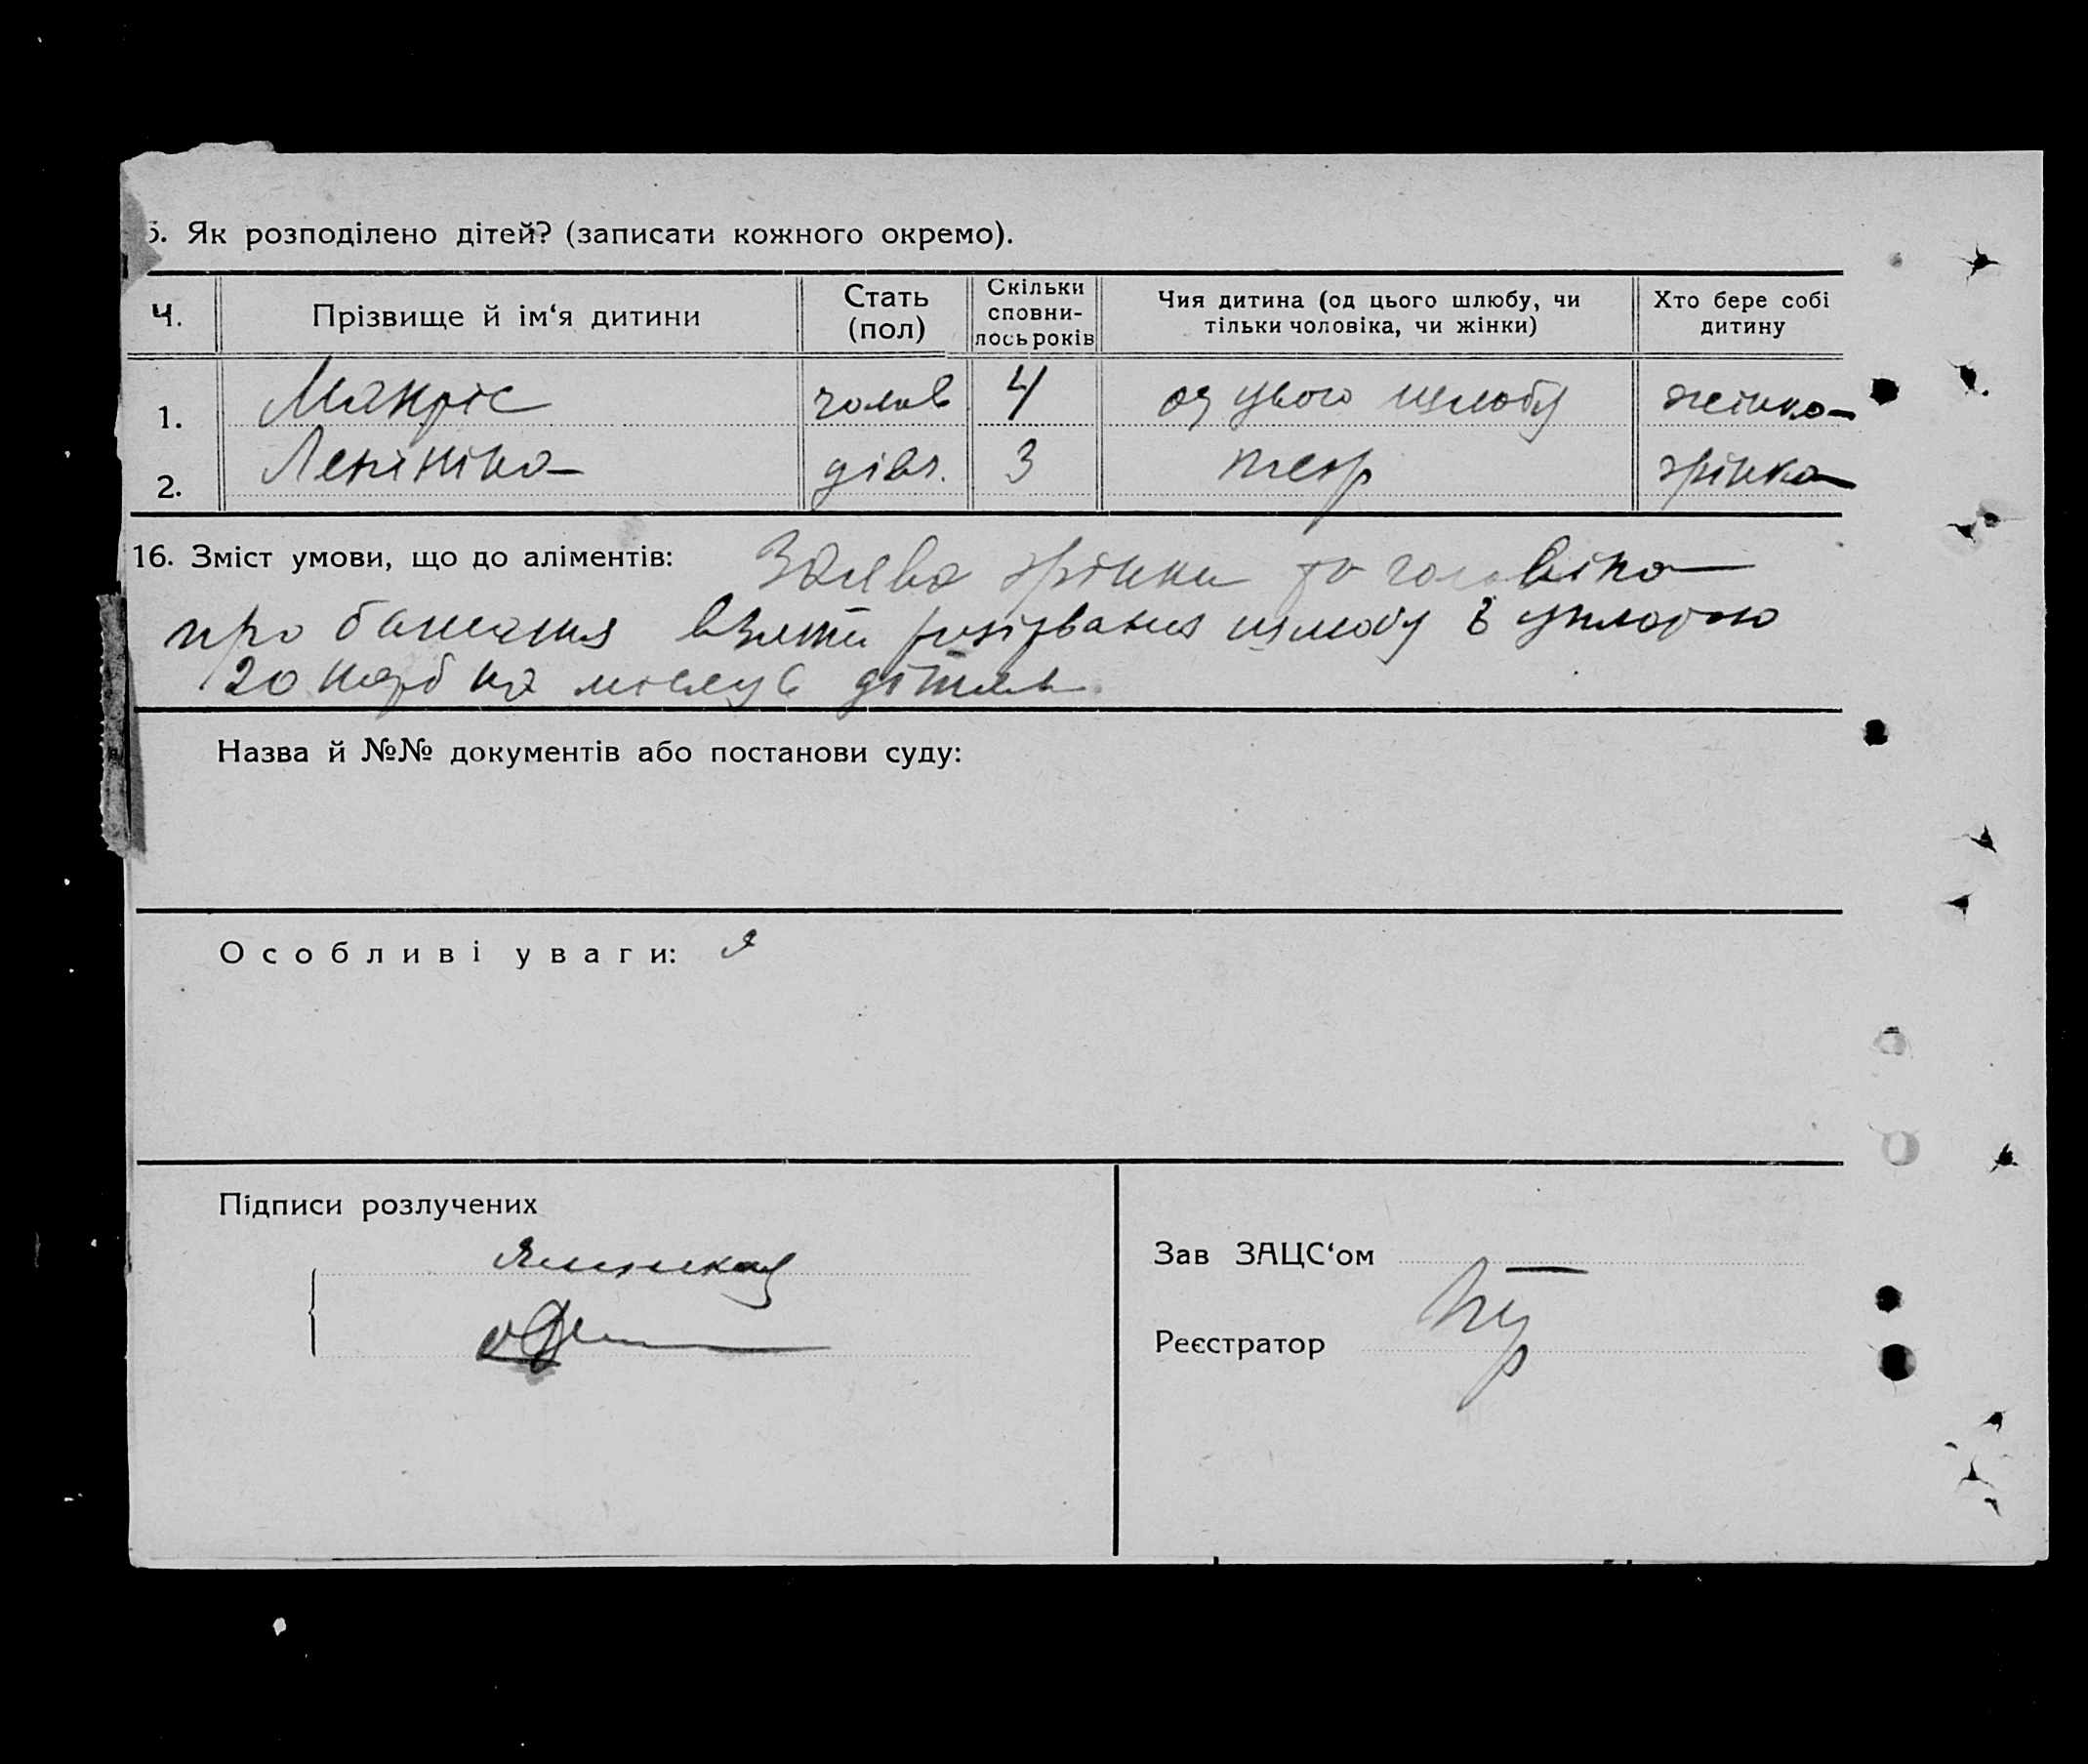 5. Як розподілено дітей? (записати кожного окремо).
Ч. Прізвище й ім‘я дитини Стать (пол) Скільки сповни-лось років Чия дитина (од цього шлюбу, чи тільки чоловіка, чи жінки) Хто бере собі дитину
1. Макріс чолов 4 од цього шлюбу жінка
2. Ленініна дівч. 3 теж жінка
16. Зміст умови, що до аліментів: Заява жінки та чоловіка
про бажання взяти розірвання шлюбу з уплатою
20 карб на місяць дітям
Назва й №№ документів або постанови суду:
Особливі уваги:
Підписи розлучених
Зав ЗАЦС‘ом —
Реєстратор